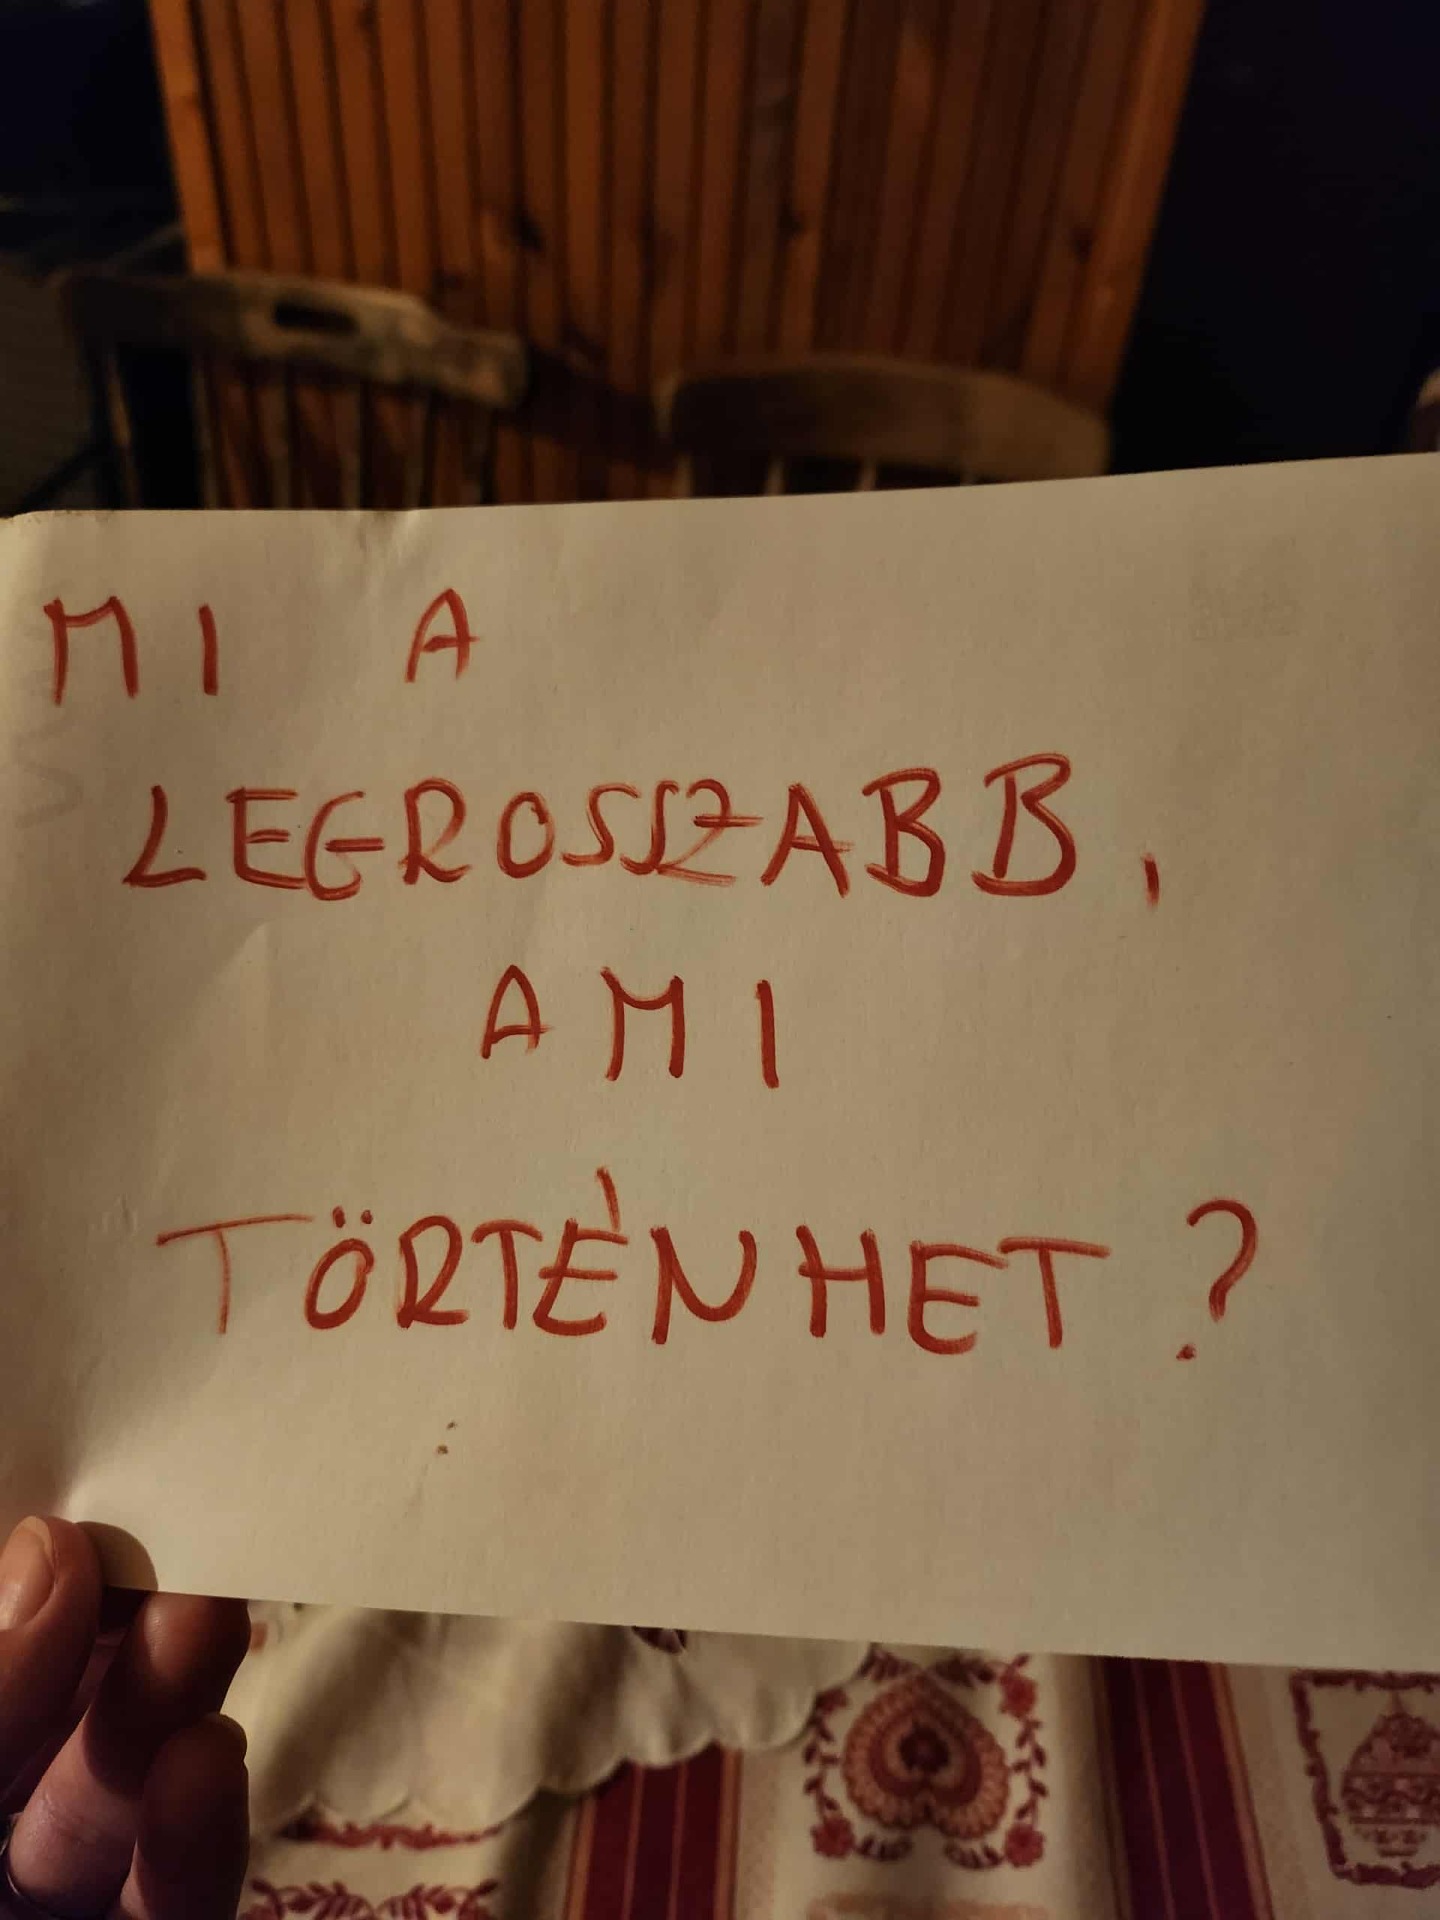 MI A
LEGROSSZABB,
AMI
TÖRTÉNHET?